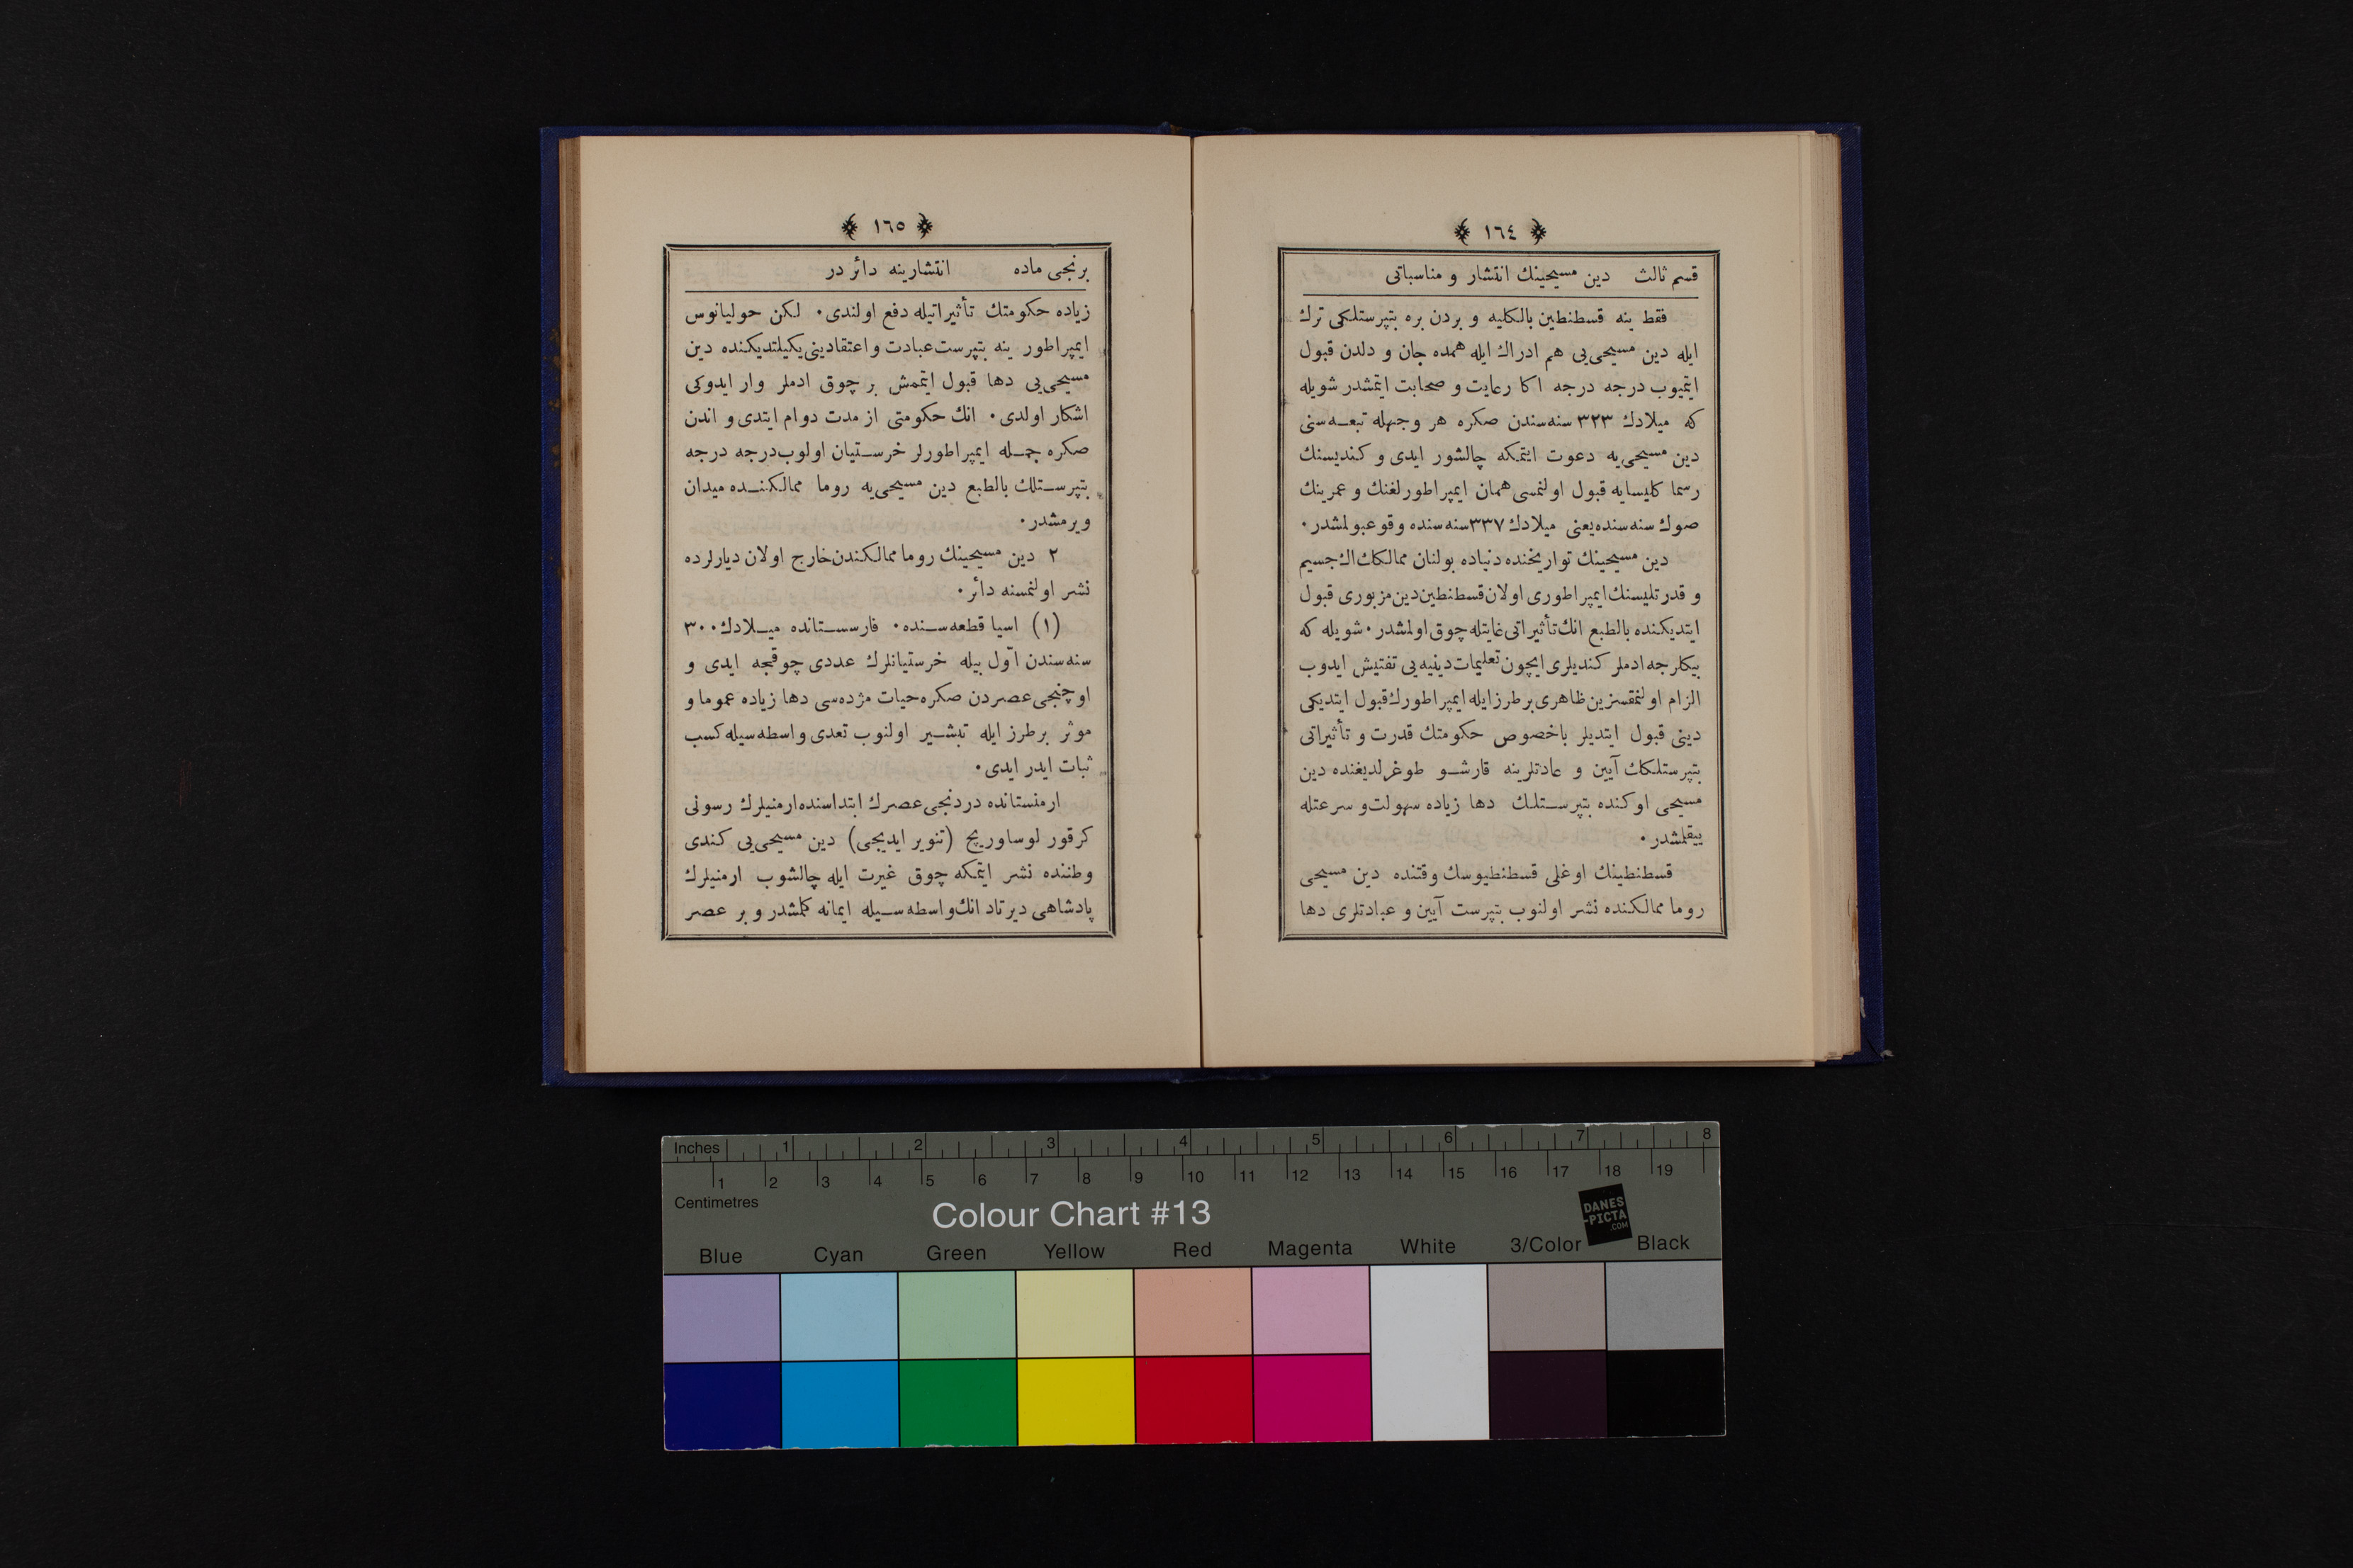 ١٦٤
قسم ثالث دين مسيحينك انتشار و مناسباتى
فقط ينه قسطنطين بالكليه و بردن بره بتپرستلكى ترك
ايله دين مسيحى‌يى هم ادراك ايله همده جان و دلدن قبول
ايتميوب درجه درجه اكا رعايت و صحابت ايتمشدر شويله
كه ميلادك ٣٢٣ سنه‌سندن صكره هر وجهله تبعه‌سنى
دين مسيحى‌يه دعوت ايتمكه چالشور ايدى و كنديسنك
رسما كليسايه قبول اولنمسى همان ايمپراطورلغنك و عمرينك
صوك سنه‌سنده يعنى ميلادك ٣٣٧ سنه‌سنده وقوعبولمشدر ٠
دين مسيحينك تواريخنده دنياده بولنان ممالكك اك جسيم
و قدرتليسنك ايمپراطورى اولان قسطنطين دين مزبورى قبول
ايتديكنده بالطبع انك تأثيراتى غايتله چوق اولمشدر ٠ شويله كه
بيكلرجه ادملر كنديلرى ايچون تعليمات دينيه‌يى تفتيش ايدوب
الزام اولنمقسزين ظاهرى بر طرز ايله ايمپراطورك قبول ايتديكى
دينى قبول ايتديلر باخصوص حكومتك قدرت و تأثيراتى
بتپرستلكك آيين و عادتلرينه قارشو طوغرلديغنده دين
مسيحى اوكنده بتپرستلك دها زياده سهولت و سرعتله
ييقلمشدر ٠
قسطنطينك اوغلى قسطنطيوسك وقتنده دين مسيحى
روما ممالكنده نشر اولنوب بتپرست آيين و عبادتلرى دها
١٦٥
برنجى ماده انتشارينه دائر در
زياده حكومتك تأثيراتيله دفع اولندى ٠ لكن حوليانوس
ايمپراطور ينه بتپرست عبادت و اعتقادينى يكيلتديكنده دين
مسيحى‌يى دها قبول ايتممش بر چوق ادملر وار ايدوكى
اشكار اولدى ٠ انك حكومتى از مدت دوام ايتدى و اندن
صكره جمله ايمپراطورلر خرستيان اولوب درجه درجه
بتپرستلك بالطبع دين مسيحى‌يه روما ممالكنده ميدان
ويرمشدر ٠
٢ دين مسيحينك روما ممالكندن خارج اولان ديارلرده
نشر اولنمسنه دائر ٠
(١) اسيا قطعه‌سنده ٠ فارسستانده ميلادك ٣٠٠
سنه‌سندن اوّل بيله خرستيانلرك عددى چوقجه ايدى و
اوچنجى عصردن صكره حيات مژده‌سى دها زياده عموما و
موثر بر طرز ايله تبشير اولنوب تعدى واسطه‌سيله كسب
ثبات ايدر ايدى ٠
ارمنستانده دردنجى عصرك ابتداسنده ارمنيلرك رسولى
كرقور لوساوريچ (تنوير ايديجى) دين مسيحى‌يى كندى
وطننده نشر ايتمكه چوق غيرت ايله چالشوب ارمنيلرك
پادشاهى ديرتاد انك واسطه‌سيله ايمانه كلمشدر و بر عصر
Inches 1 2 3 4 5 6 7 8
1 2 3 4 5 6 7 8 9 10 11 12 13 14 15 16 17 18 19
Centimetres
Colour Chart #13
DANES
-PICTA
.COM
Blue Cyan Green Yellow Red Magenta White 3/Color Black